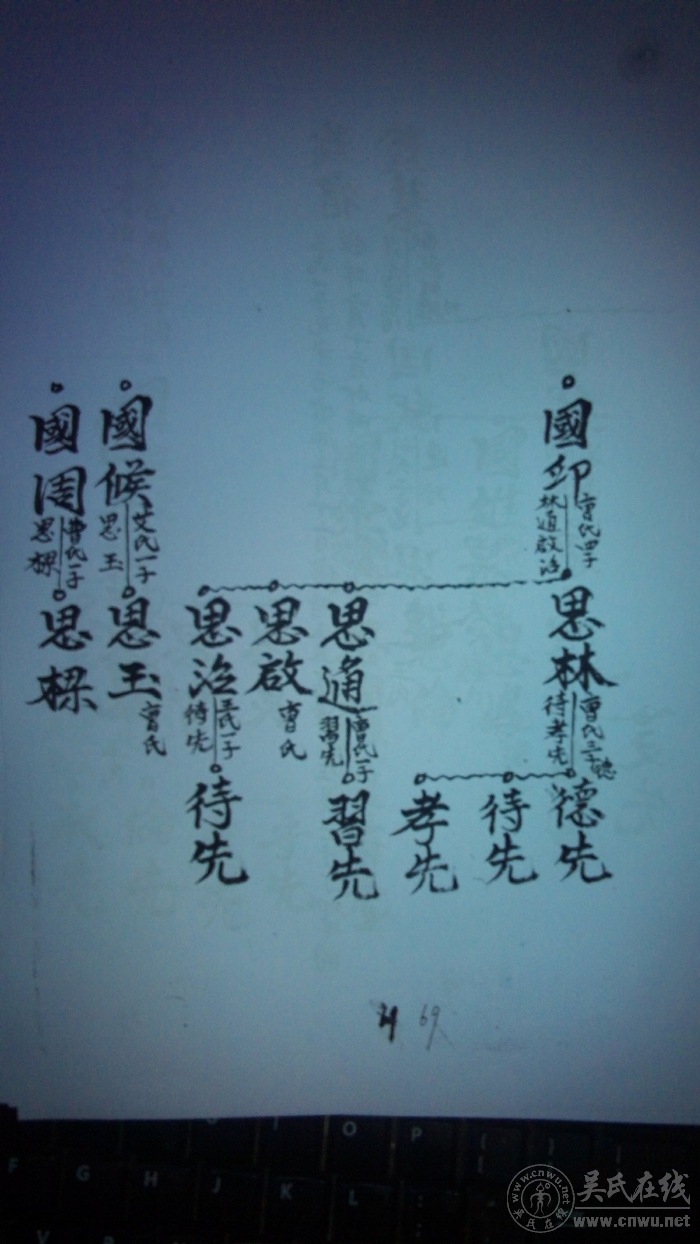 國卯
曹氏四子
林通啟治
思林
曹氏三子
德
待孝先
德先
待先
孝先
思通
曹氏一子
習先
習先
思啟
曹氏
思治
王氏一子
待先
待先
國候
艾氏一子
思玉
思玉
曹氏
國周
曹氏一子
思樑
思樑
69
O P
F G H J K L
吴氏在线
www.cnwu.net